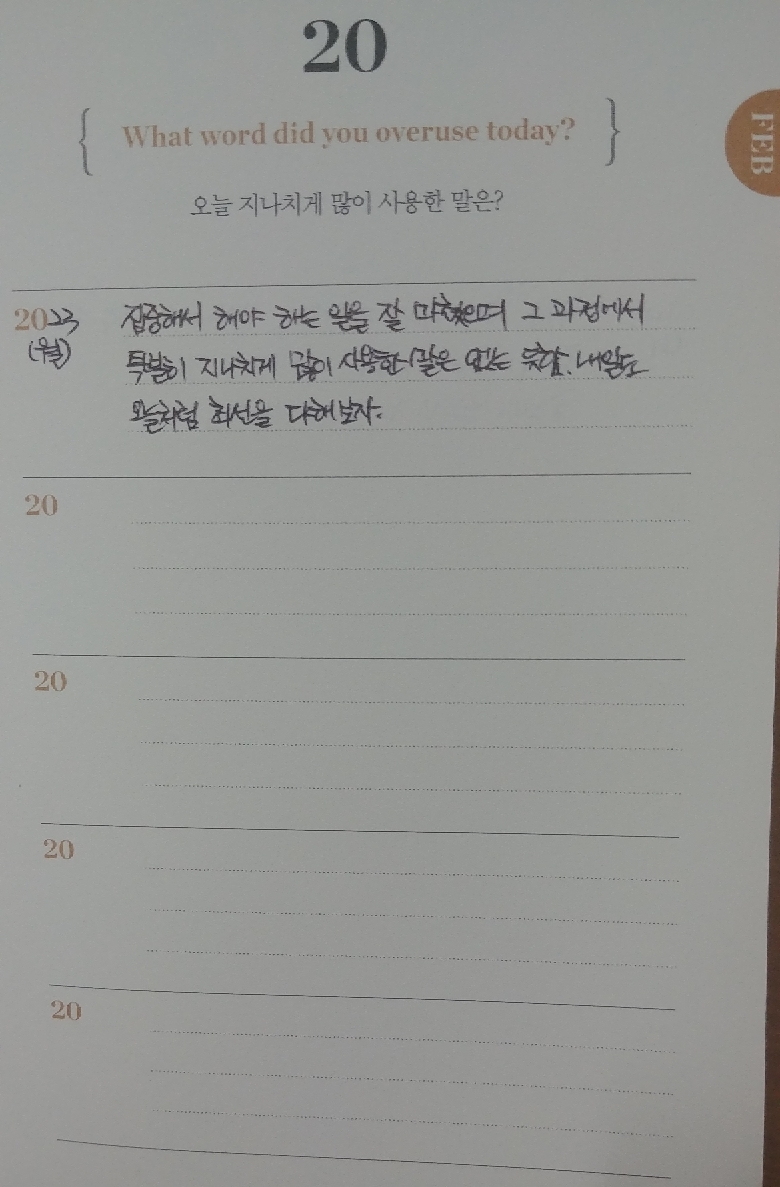 20
{ What word did you overuse today? }
FEB
오늘 지나치게 많이 사용한 말은?
2023 집중해서 해야 하는 일을 잘 마쳤으며 그 과정에서
(월) 특별히 지나치게 많이 사용한 말은 없는 듯하다. 내일도
오늘처럼 최선을 다해보자.
20
20
20
20